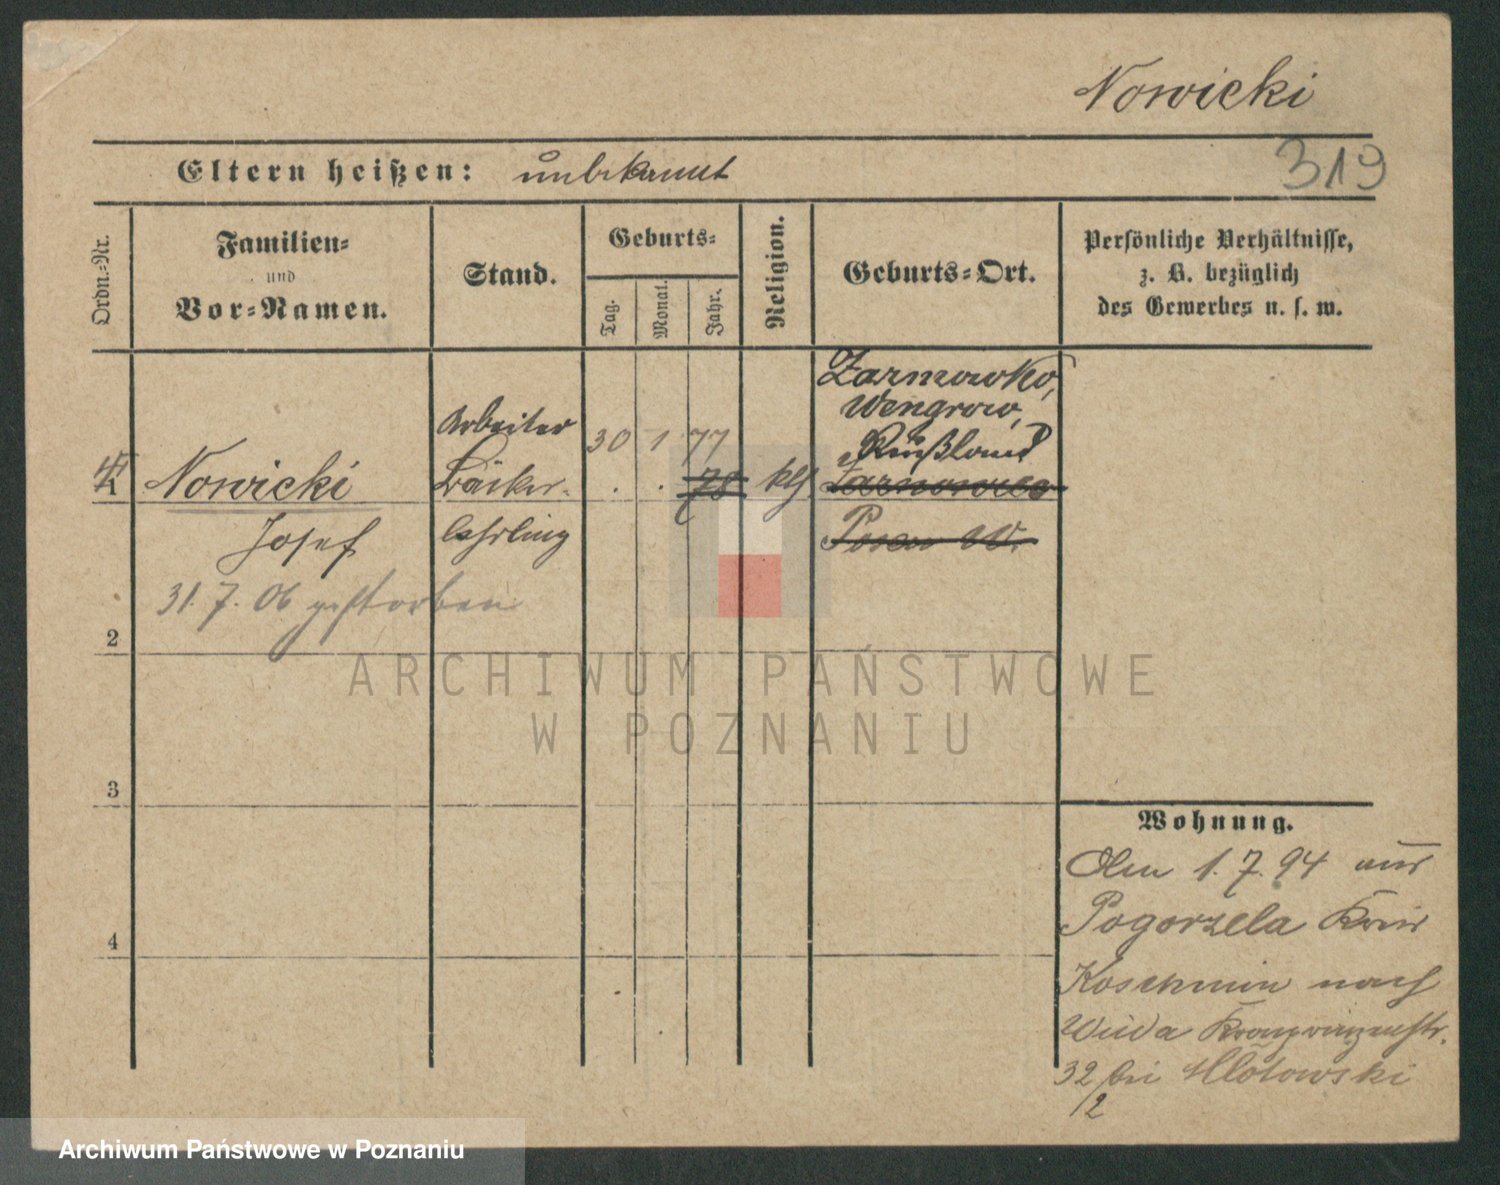 Nowicki
319
Eltern heißen: unbekannt
Ordn.-Nr.
Familien-
und
Vor-Namen.
Stand.
Geburts-
Tag.
Monat.
Jahr.
Religion.
Geburts-Ort.
Persönliche Verhältnisse,
z. B. bezüglich
des Gewerbes u. s. w.
1
Nowicki
Josef
31. 7. 06 gestorben
Arbeiter
Bäcker-
lehrling
30 1 77
. . 78
kth
Zarnowko,
Wengrow,
Rußland
Zarnowice
Posen W.
2
3
4
Wohnung.
Am 1. 7. 94 aus
Pogorzela Kreis
Koschmin nach
Wilda Kronprinzenstr.
32 bei
/2
ARCHIWUM PAŃSTWOWE
W POZNANIU
Archiwum Państwowe w Poznaniu